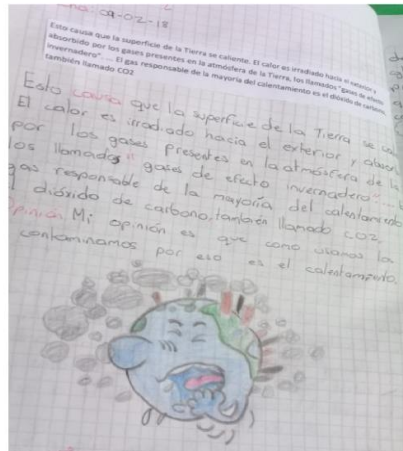 09-02-18
Esto causa que la superficie de la Tierra se caliente. El calor es irradiado hacia el exterior y
absorbido por los gases presentes en la atmósfera de la Tierra, los llamados "gases de efecto
invernadero". ... El gas responsable de la mayoría del calentamiento es el dióxido de carbono,
también llamado CO2
Esto causa que la superficie de la Tierra se
El calor es irradiado hacia el exterior y
por los gases presentes en la atmósfera de la
los llamados "gases de efecto invernadero"...
gas responsable de la mayoría del calentamiento
dióxido de carbono, también llamado CO2.
Opinión: Mi opinión es que como usamos la
contaminamos por eso es el calentamiento.